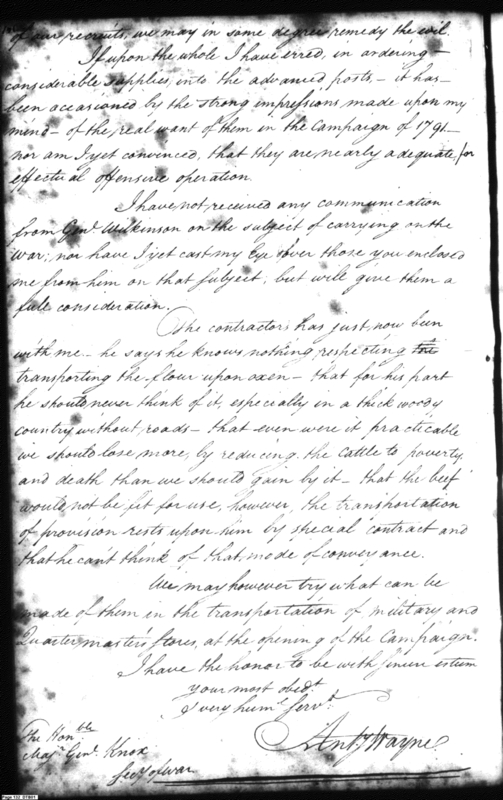 of our recruits, we may in some degree remedy the evil.
If upon the whole I have erred, in ordering
considerable supplies into the advanced posts, – it has
been occasioned by the strong impressions made upon my
mind – of the real want of them in the Campaign of 1791 –
nor am I yet convinced, that they are nearly adequate, for
effectual offensive operation
I have not received any communication
from Genl. Wilkinson on the subject of carrying on the
War; nor have I yet cast my Eye over those you enclosed
me from him on that subject, but will give them a
full consideration.
The contractors has just now been
with me – he says he knows nothing respecting the
transporting the flour upon oxen – that for his part
he should never think of it, especially in a thick woody
country without roads – that even were it practicable
we should lose more, by reducing the Cattle to poverty
and death than we should gain by it – that the beef
would not be fit for use, however, the transportation
of provision rests upon him by special contract and
that he can't think of that mode of conveyance.
We may however try what can be
made of them in the transportation of military and
Quartermaster's stores, at the opening of the Campaign.
I have the honor to be with sincere esteem
your most obedt.
& very huml. servt.
Anty Wayne
The Honble
Majr. Genl. Knox
Secy of War